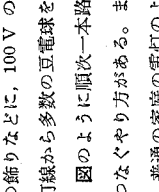 の飾りなどに，100 V の
灯線から多数の豆電球を
図のように順次一本路
つなぐやり方がある。ま
普通の家庭の電灯のよ